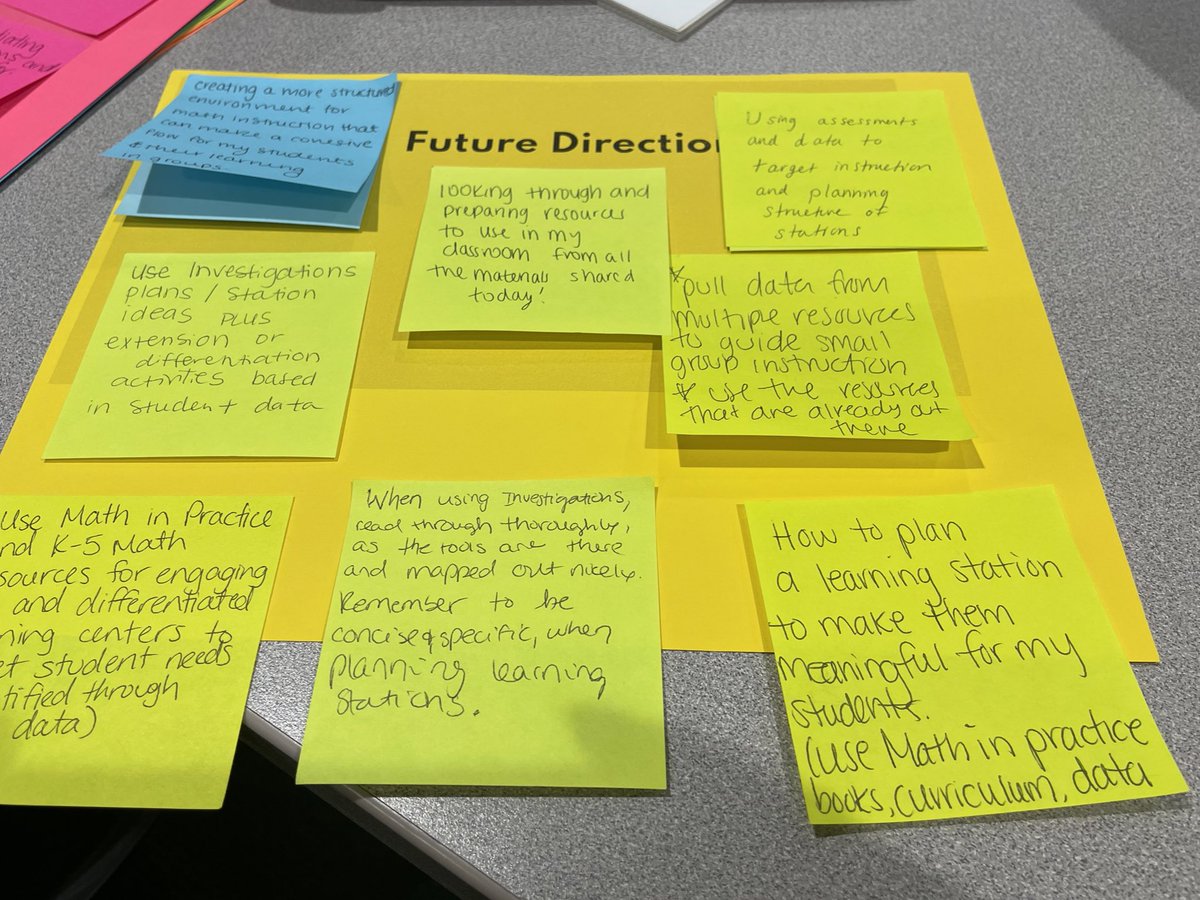 Future Direction
creating a more structured
environment for
math instruction that
can make a cohesive
flow for my students
& their learning
in groups.
looking through and
preparing resources
to use in my
classroom from all
the materials shared
today!
Using assessments
and data to
target instruction
and planning
structure of
stations
use Investigations
plans / station
ideas PLUS
extension or
differentiation
activities based
in student data
*pull data from
multiple resources
to guide small
group instruction
* use the resources
that are already out
there
Use Math in Practice
nd K-5 Math
sources for engaging
and differentiated
ning centers to
et student needs
tified through
data)
When using Investigations,
read through thoroughly,
as the tools are there
and mapped out nicely.
Remember to be
concise & specific, when
planning learning
stations.
How to plan
a learning station
to make them
meaningful for my
students.
(use Math in practice
books, curriculum, data